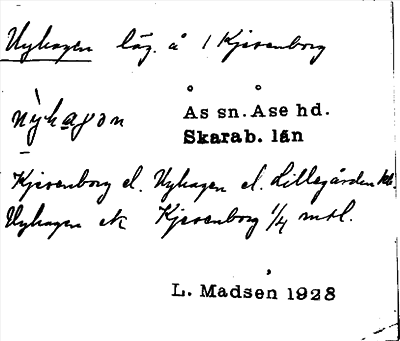 Nyhagen läg. å 1 Kjesenborg
nyhagen
Ås sn. Åse hd.
Skarab. län
Kjesenborg el. Nyhagen el. Lillegården
Nyhagen ek Kjesenborg 1/4 mtl.
L. Madsen 1928